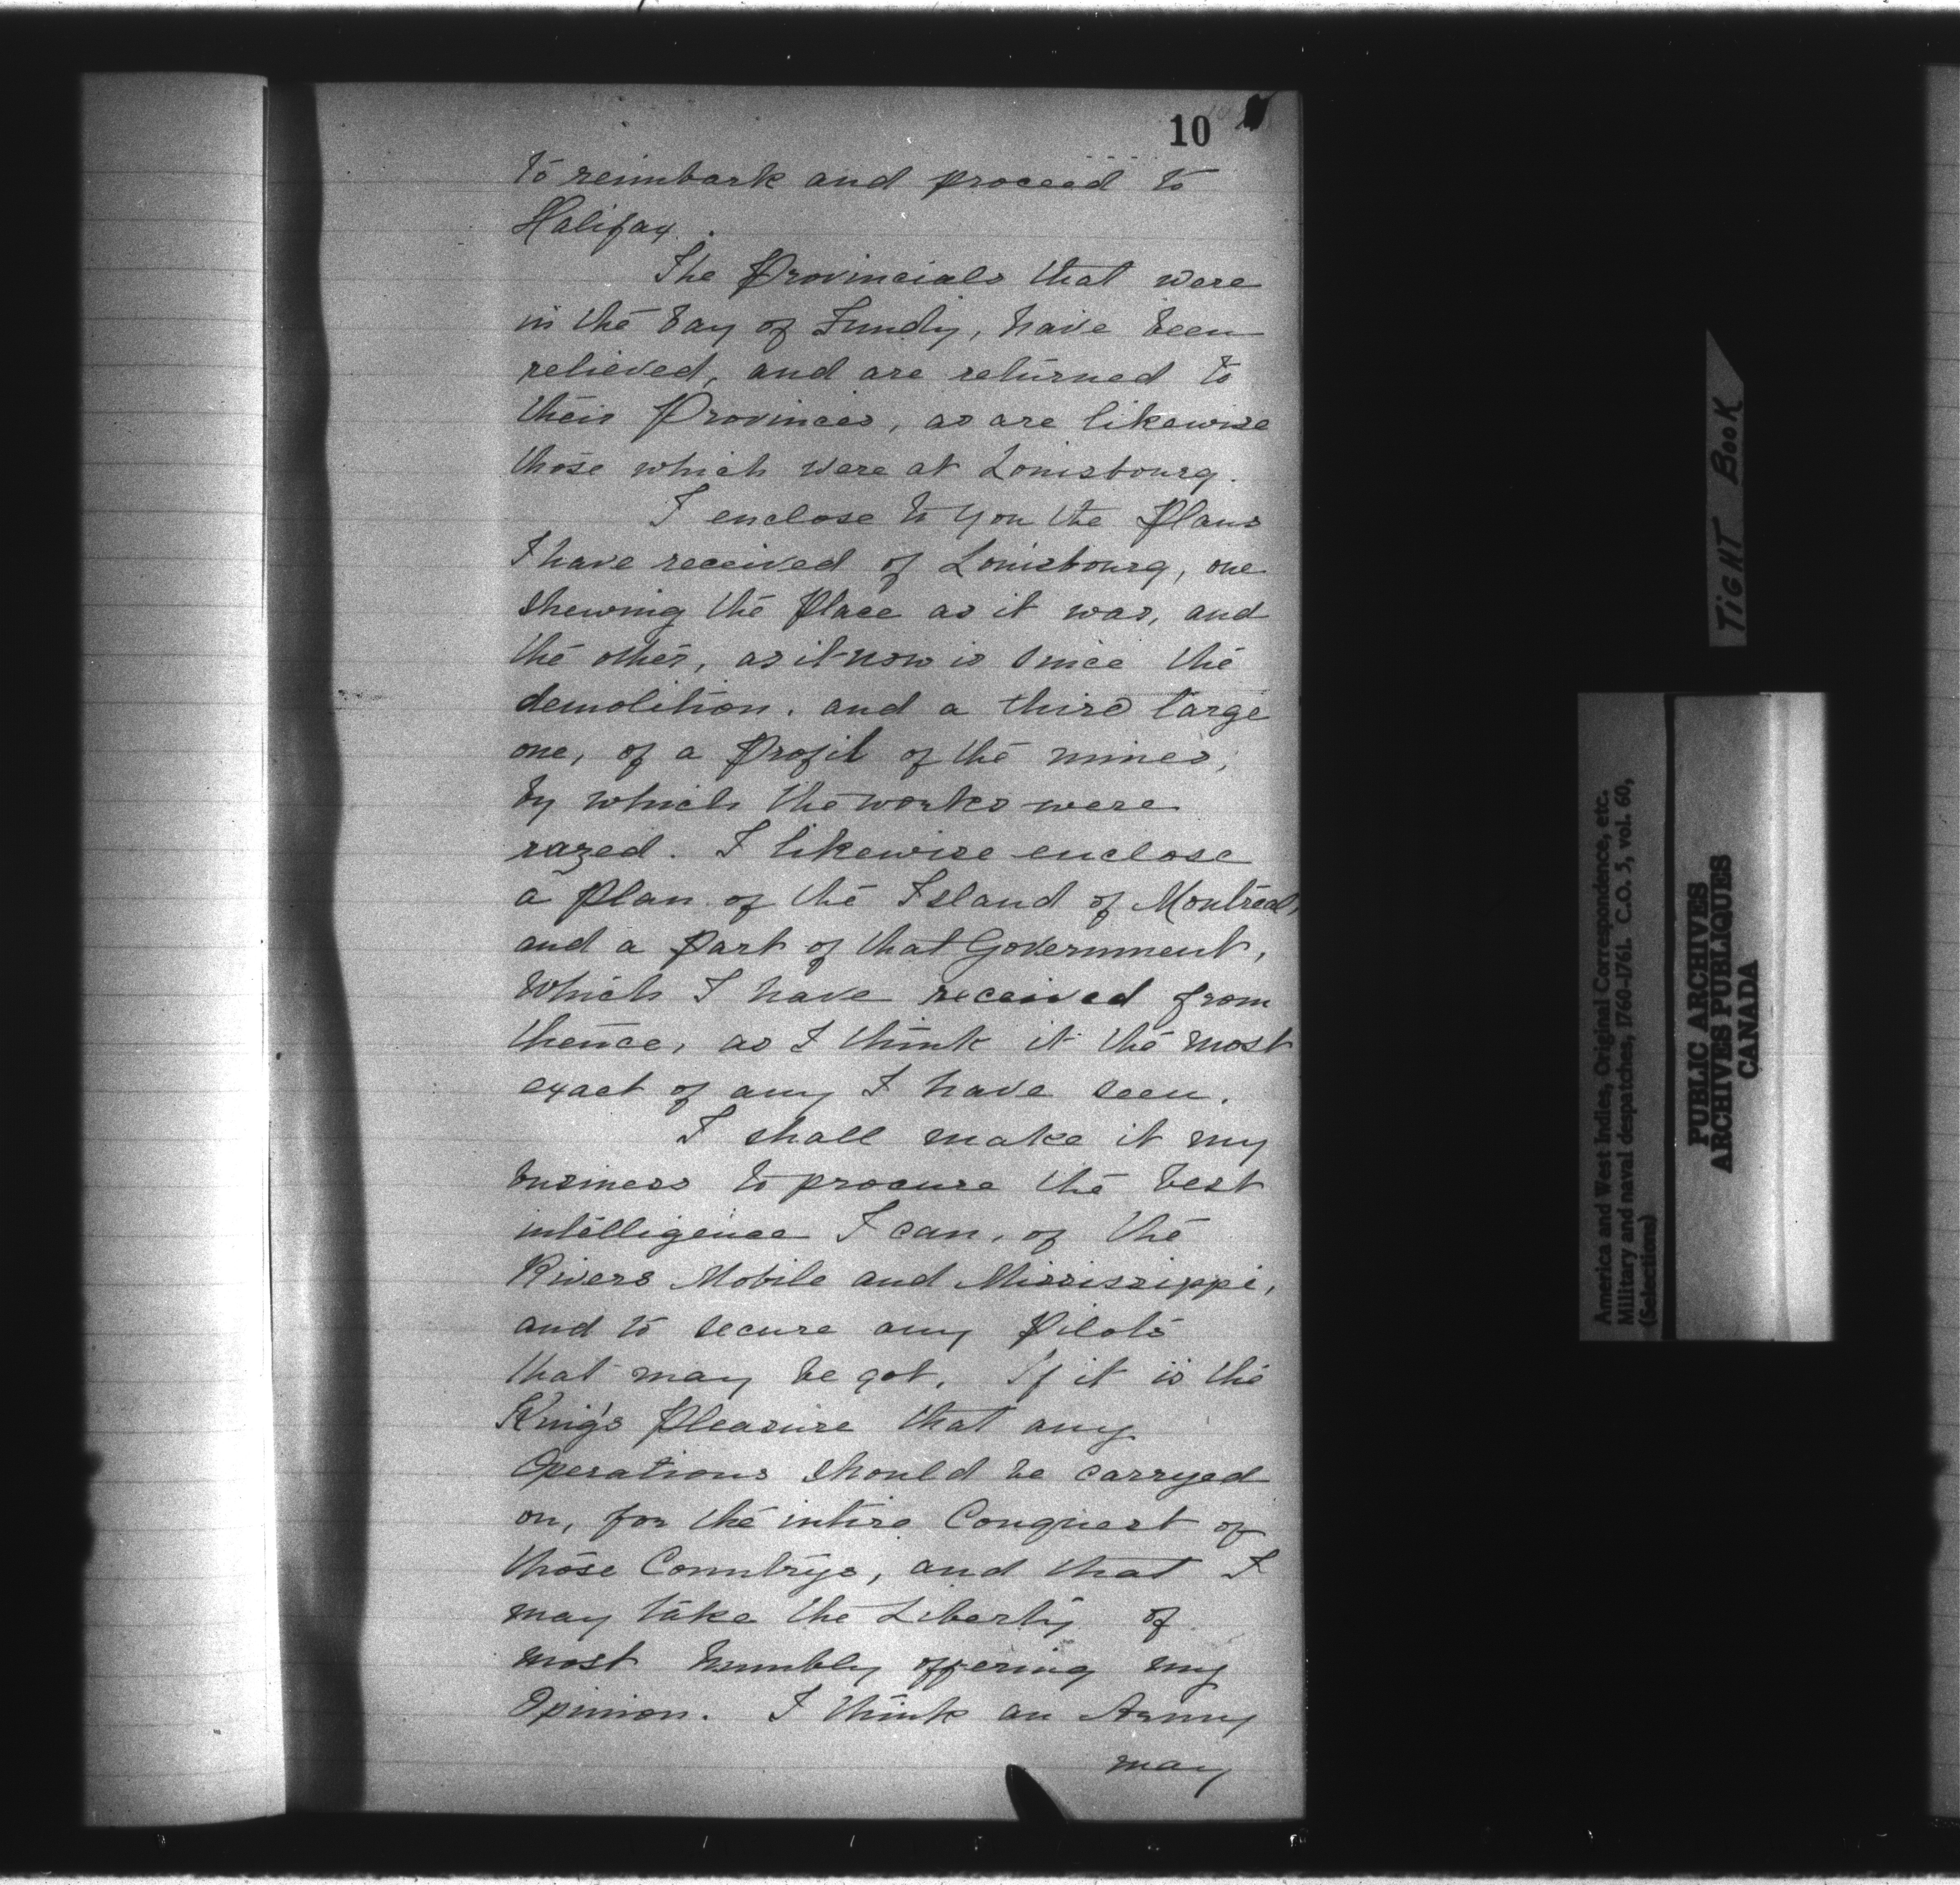 10
to reimbark and proceed to
Halifax.
The Provincials that were
in the bay of Fundy, have been
relieved, and are returned to
their Provinces, as are likewise
those which were at Louisbourg.
I enclose to you the Plans
I have received of Louisbourg, one
shewing the Place as it was, and
the other, as it now is since the
demolition. and a third large
one, of a Profil of the mines,
by which the works were
razed. I likewise enclose
a Plan of the Island of Montréal,
and a Part of that Government,
which I have received from
thence, as I think it the most
exact of any I have seen.
I shall make it my
business to procure the best
intelligence I can, of the
Rivers Mobile and Mississippi,
and to secure any Pilots
that may be got. If it is the
King's Pleasure that any
Operations should be carryed
on, for the intire Conquest of
those Countrys, and that I
may take the Liberty of
most humbly offering my
Opinion. I think an Army
may
TIGHT BOOK
America and West Indies, Original Correspondence, etc.
Military and naval despatches, 1760-1761. C.O. 5, vol. 60,
(Selections)
PUBLIC ARCHIVES
ARCHIVES PUBLIQUES
CANADA